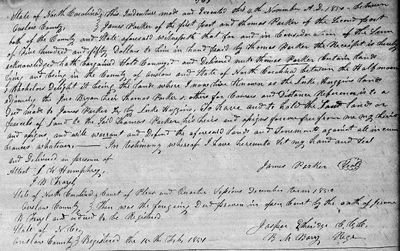 State of North Carolina, This Indenture made and Executed this 9th November A.D. 1850 between
Onslow County James Parker of the first part and Thomas Parker of the Second part
both of the County and State aforesaid witnesseth that for and in Consideration of the Sum
of five hundred and fifty Dollars to him in hand paid by Thomas Parker the Receipt is hereby
acknowledged hath bargained Sold Conveyed and Delivered unto Thomas Parker Certain Lands
lying and being in the County of Onslow and State of North Carolina between the
being the lands where I now live Known as the Luke Huggins land
adjoining the Thomas Parker & others for Courses and Distance Reference is to a
Deed made to James Parker by Luke Huggins, To have and to hold the Said lands or
parcels of Land to the Said Thomas Parker his heirs and assigns forever free from me my heirs
and assigns, and will warrant and Defend the aforesaid lands and Tenements against all
whatever. In testimony whereof I have hereunto Set my hand and Seal
and Delivered in presence of
Attest L W Humphrey James Parker Seal
State of North Carolina, Court of Pleas and Quarter Sessions December term 1850
Onslow County Then was the foregoing Deed proven in open Court by the oath of
and ordered to be Registered
State of N. Ca. Jasper Etheridge C.C.C.
Onslow County Registered the 10th Feby 1851 B. M. Barry Regr